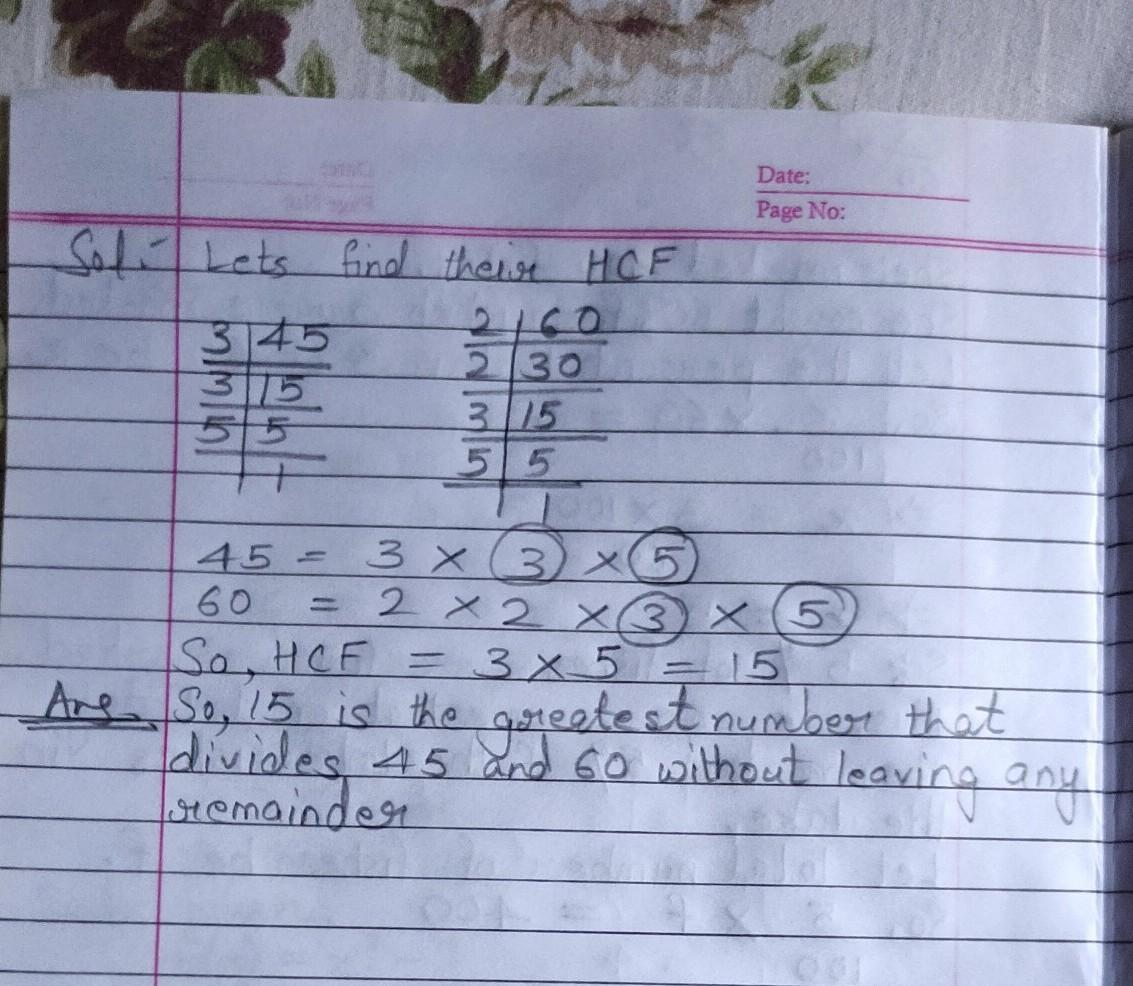 Date:
Page No:
Sol:- Lets find their HCF
3 | 45
3 | 15
5 | 5
| 1
2 | 60
2 | 30
3 | 15
5 | 5
| 1
45 = 3 × 3 × 5
60 = 2 × 2 × 3 × 5
So, HCF = 3 × 5 = 15
Ans. So, 15 is the greatest number that
divides 45 and 60 without leaving any
remainder